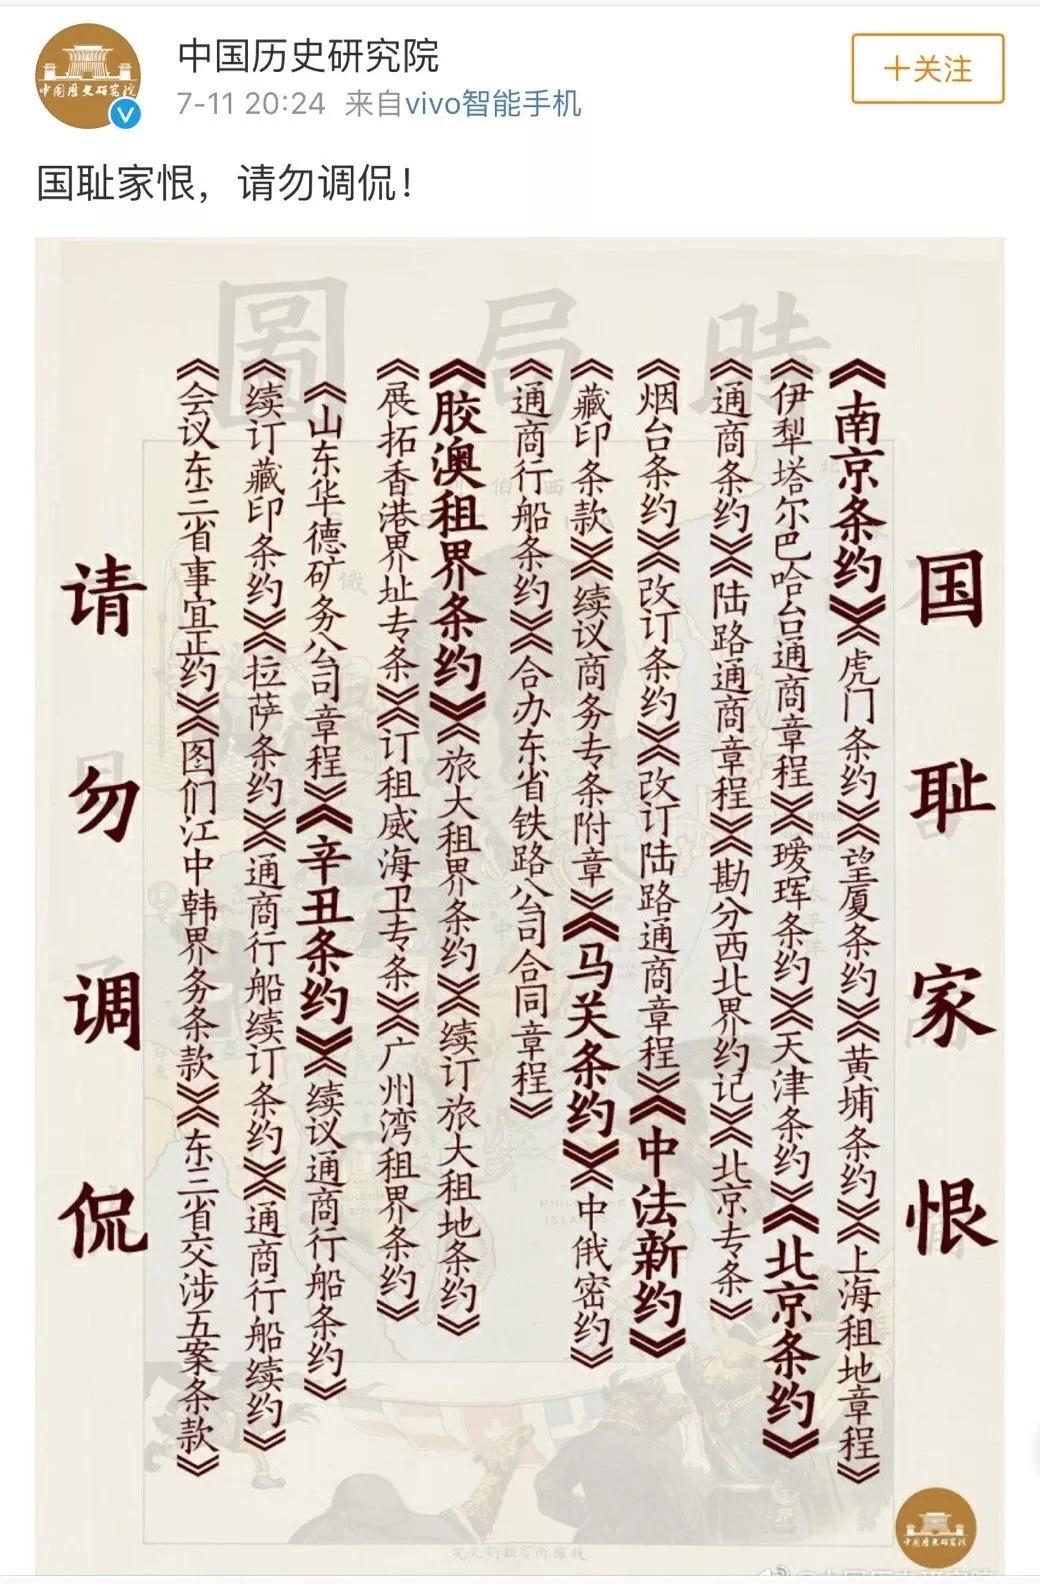 中国历史研究院
7-11 20:24 来自vivo智能手机
+关注
国耻家恨，请勿调侃！
時局圖
国耻家恨
《南京条约》《虎门条约》《望厦条约》《黄埔条约》《上海租地章程》
《伊犁塔尔巴哈台通商章程》《瑷珲条约》《天津条约》《北京条约》
《通商条约》《陆路通商章程》《勘分西北界约记》《北京专条》
《烟台条约》《改订条约》《改订陆路通商章程》《中法新约》
《藏印条款》《续议商务专条附章》《马关条约》《中俄密约》
《通商行船条约》《合办东省铁路公司合同章程》
《胶澳租界条约》《旅大租界条约》《续订旅大租地条约》
《展拓香港界址专条》《订租威海卫专条》《广州湾租界条约》
《山东华德矿务公司章程》《辛丑条约》《续议通商行船条约》
《续订藏印条约》《拉萨条约》《通商行船续订条约》《通商行船续约》
《会议东三省事宜正约》《图们江中韩界务条款》《东三省交涉五案条款》
请勿调侃
中國歷史研究院